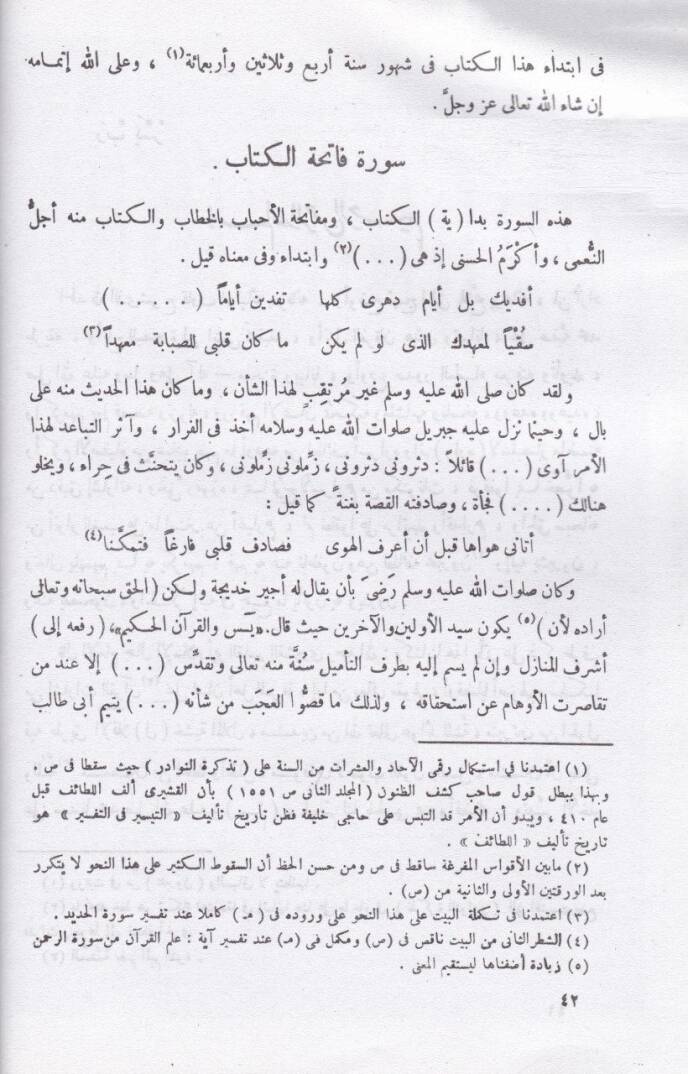 فى ابتداء هذا الكتاب فى شهور سنة أربع وثلاثين وأربعمائة(١) ، وعلى الله إتمامه
إن شاء الله تعالى عز وجلَّ .
سورة فاتحة الكتاب .
هذه السورة بدا ( ية ) الكتاب ، ومفاتحة الأحباب بالخطاب والكتاب منه أجلُّ
النُّعمى ، وأكْرَمُ الحسنى إذ هى ( . . . )(٢) وابتداء وفى معناه قيل .
أفديك بل أيام دهرى كلها تفدين أياماً ( . . . . . )
سُقْياً لمعهدك الذى لو لم يكن ما كان قلبى للصبابة معهداً(٣)
ولقد كان صلى الله عليه وسلم غير مُرتقِبٍ لهذا الشأن ، وما كان هذا الحديث منه على
بال ، وحينما نزل عليه جبريل صلوات الله عليه وسلامه أخذ فى الفرار ، وآثر التباعد لهذا
الأمر آوى ( . . . ) قائلاً : دثرونى دثرونى ، زمِّلونى زمِّلونى ، وكان يتحنَّث فى حراء ، ويخلو
هنالك ( . . . . ) فجأة ، وصادفته القصة بغتةً كما قيل :
أتانى هواها قبل أن أعرف الهوى فصادف قلبى فارغاً فتمكَّنا(٤)
وكان صلوات الله عليه وسلم رَضىَ بأن يقال له أجير خديجة ولكن ( الحق سبحانه وتعالى
أراده لأن )(٥) يكون سيد الأولين والآخرين حيث قال. «يٓسٓ والقرآن الحكيم»، ( رفعه إلى )
أشرف المنازل وإن لم يسم إليه بطرف التأميل سُنَّة منه تعالى وتقدس ( . . . ) إلا عند من
تقاصرت الأوهام عن استحقاقه ، ولذلك ما قصُّوا العَجَب من شأنه ( . . . ) يتيم أبى طالب
(١) اعتمدنا فى استكمال رقمى الآحاد والعشرات من السنة على ( تذكرة النوادر ) حيث سقطا فى ص .
وبهذا يبطل قول صاحب كشف الظنون ( المجلد الثانى ص ١٥٥١ ) بأن القشيرى ألف اللطائف قبل
عام ٤١٠ ، ويبدو أن الأمر قد التبس على حاجى خليفة فظن تاريخ تأليف « التيسير فى التفسير » هو
تاريخ تأليف « اللطائف » .
(٢) مابين الأقواس المفرغة ساقط فى ص ومن حسن الحظ أن السقوط الكثير على هذا النحو لا يتكرر
بعد الورقتين الأولى والثانية من (ص) .
(٣) اعتمدنا فى تكملة البيت على هذا النحو على وروده فى ( م ) كاملا عند تفسير سورة الحديد .
(٤) الشطر الثانى من البيت ناقص فى (ص) ومكمل فى (م) عند تفسير آية : علم القرآن من سورة الرحمن
(٥) زيادة أضفناها ليستقيم المعنى .
٤٢